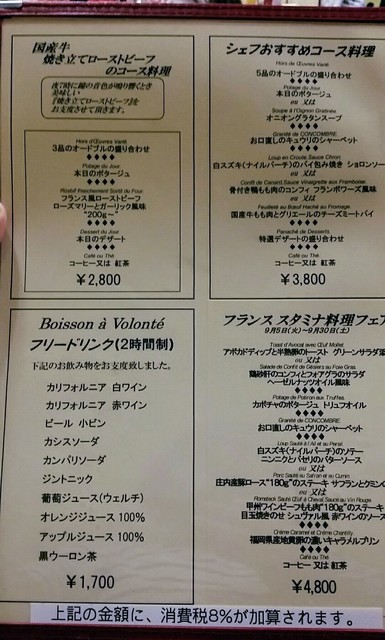 国産牛
焼き立てローストビーフ
のコース料理
夜7時に鐘の音色が鳴り響くとき
美味しい
『焼き立てローストビーフ』を
お支度させて頂きます。
Hors d'Œuvres Varié.
3品のオードブルの盛り合わせ
Potage du Jour
本日のポタージュ
Rosbif Fraichement Sortit du Four
フランス風ローストビーフ
ローズマリーとガーリック風味
"200g〜"
Dessert du Jour
本日のデザート
Café ou Thé
コーヒー又は 紅茶
￥2,800
シェフおすすめコース料理
Hors de Œuvres Varié.
5品のオードブルの盛り合わせ
Potage du Jour
本日のポタージュ
ou 又は
Soupe à l'Oignon Gratinée.
オニオングラタンスープ
Granité de CONCOMBRE
お口直しのキュウリのシャーベット
Loup en Croute, Sauce Chiron
白スズキ(ナイルパーチ)のパイ包み焼き ショロンソー
ou 又は
Confit de Canard, Sauce Vinaigrette aux Framboise.
骨付き鴨もも肉のコンフィ フランボワーズ風味
ou 又は
Feuilleté au Bœuf Haché au Fromage.
国産牛もも肉とグリエールのチーズミートパイ
Panaché de Desserts.
特選デザートの盛り合わせ
Café ou Thé.
コーヒー又は 紅茶
￥3,800
Boisson à Volonté
フリードリンク(2時間制)
下記のお飲み物をお支度致しました。
カリフォルニア 白ワイン
カリフォルニア 赤ワイン
ビール 小ビン
カシスソーダ
カンパリソーダ
ジントニック
葡萄ジュース(ウェルチ)
オレンジジュース 100%
アップルジュース 100%
黒ウーロン茶
￥1,700
フランス スタミナ料理フェア
9月5日(火)〜9月30日(土)
Toast d'Avocat avec Œuf Mollet.
アボカドディップと半熟卵のトースト グリーンサラダ添
Salade de Confit de Gésiers au Foie Gras.
鶏砂肝のコンフィとフォアグラのサラダ
ヘーゼルナッツオイル風味
Potage de Potiron aux Truffes.
カボチャのポタージュ トリュフオイル
Granité de CONCOMBRE
お口直しのキュウリのシャーベット
Loup Sauté à l'Ail et au Persil.
白スズキ(ナイルパーチ)のソテー
ニンニクとパセリのバターソース
ou 又は
Porc Sauté au Safran et au Cumin.
庄内産豚ロース"180g"のステーキ サフランとクミン
ou 又は
Romsteck Sauté Œuf à Cheval, Sauce au Vin Rouge.
甲州ワインビーフもも肉"180g"のステーキ
目玉焼きのせ シュヴァル風 赤ワインのソース
Crème Caramel et Crème Chantilly.
福岡県産地黄卵の濃いキャラメルプリン
Café ou Thé.
コーヒー 又は 紅茶
￥4,800
上記の金額に、消費税8%が加算されます。